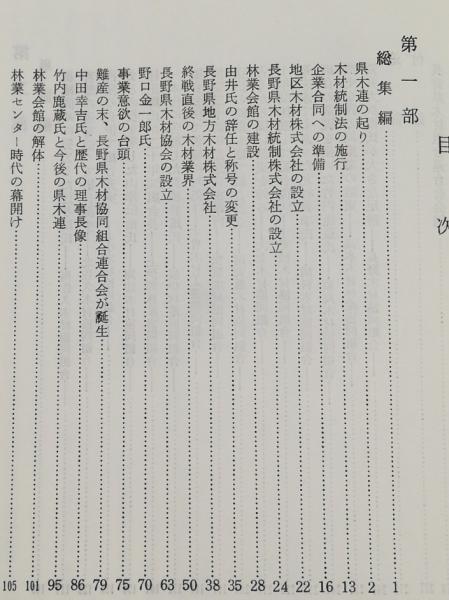 目次
第一部
総集編……1
県木連の起り……2
木材統制法の施行……13
企業合同への準備……16
地区木材株式会社の設立……22
長野県木材統制株式会社の設立……24
林業会館の建設……28
由井氏の辞任と称号の変更……35
長野県地方木材株式会社……38
終戦直後の木材業界……50
長野県木材協会の設立……63
野口金一郎氏……70
事業意欲の台頭……75
難産の末、長野県木材協同組合連合会が誕生……79
中田幸吉氏と歴代の理事長像……86
竹内鹿蔵氏と今後の県木連……95
林業会館の解体……101
林業センター時代の幕開け……105